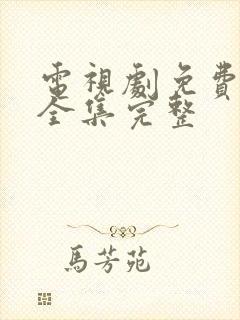 電視劇免費
全集完整
馬芳苑